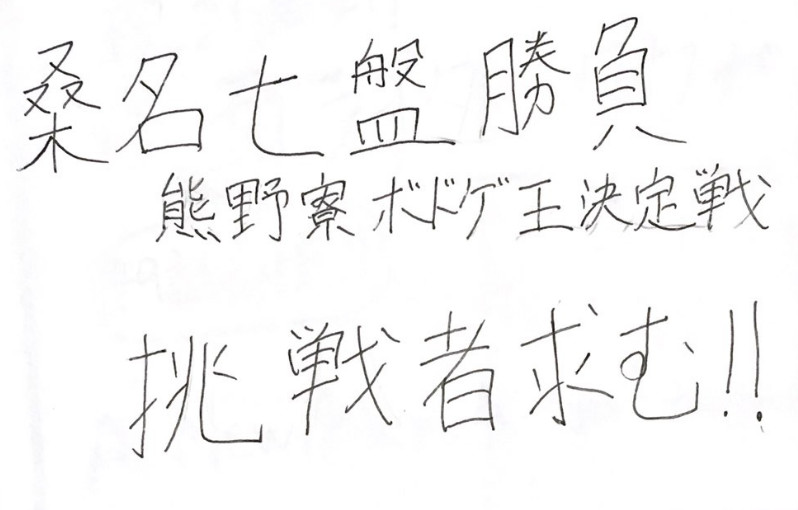 桑名七盤勝負
熊野寮ボドゲ王決定戦
挑戦者求む!!